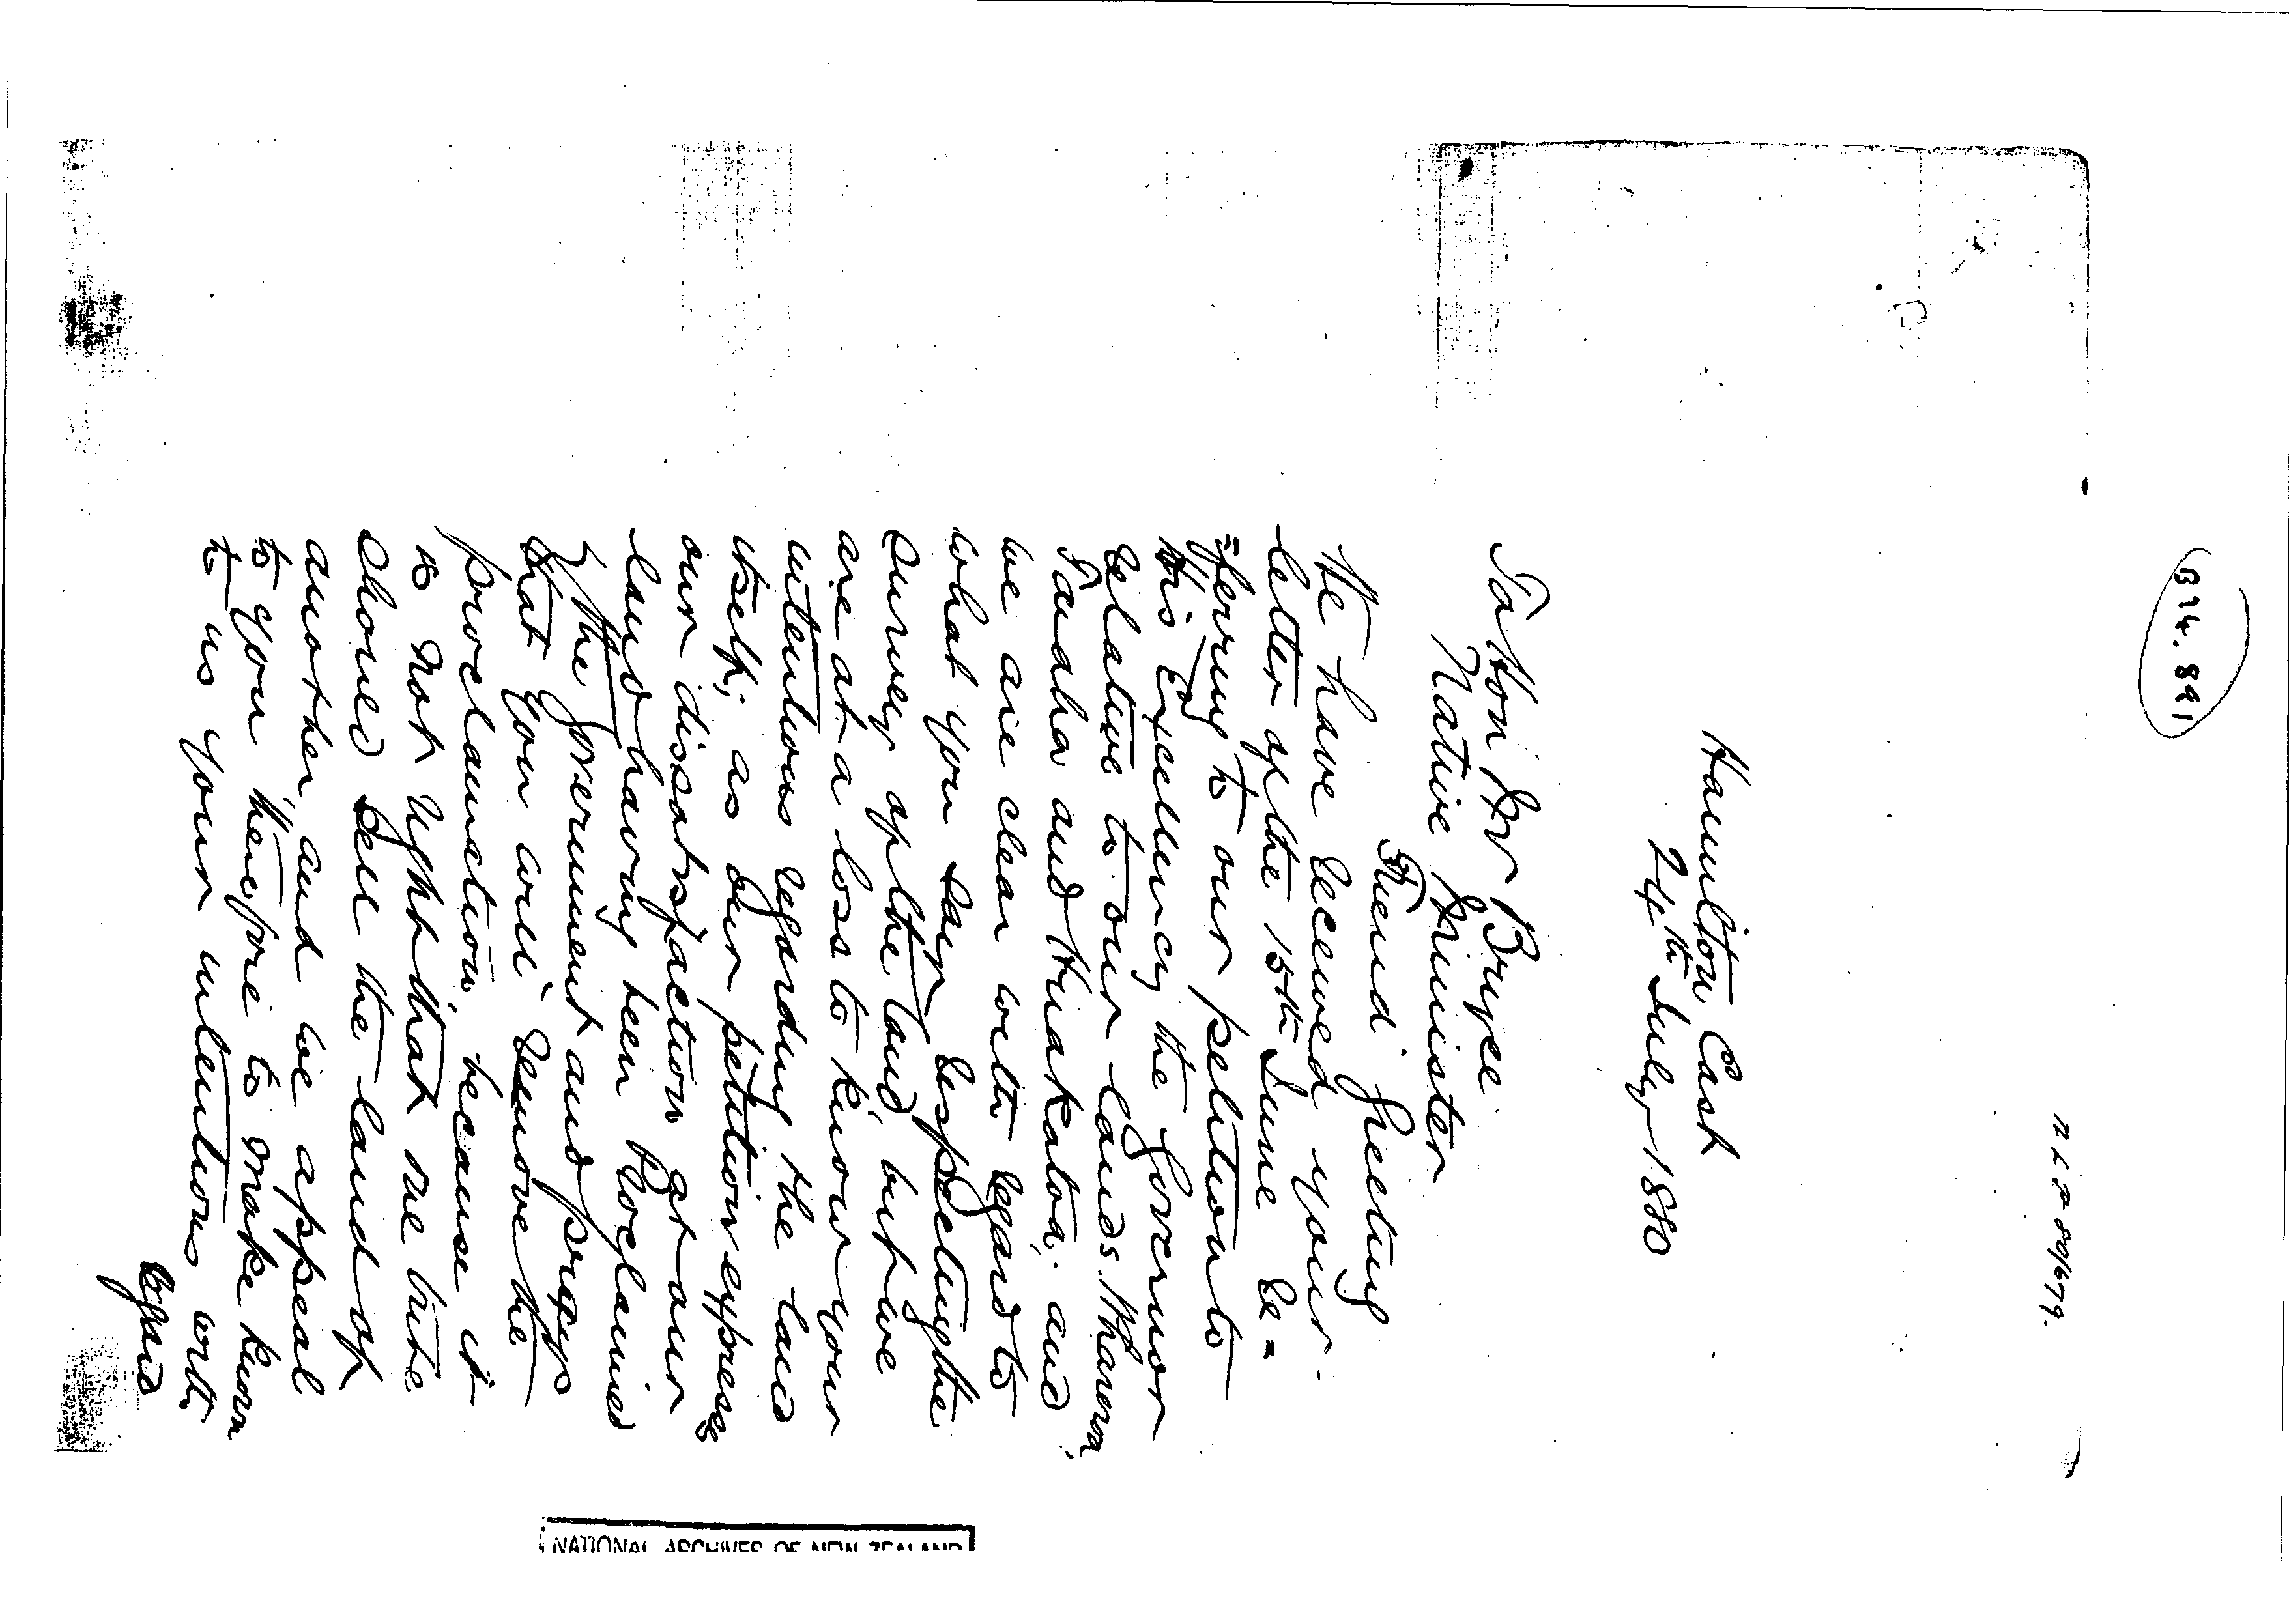 B 74. 891
N L P 80/679.
Hamilton East
24th July 1880
To Hon Mr Bryce
Native Minister
Friend Greeting
We have received your
letter of the 15th June re=
=ferring to our petition to
His Excellency the Governor
relative to our lands.
Tauaha and and
we are clear with regard to
what you say respecting the
survey of the land but we
are at a loss to know your
intentions regarding the land
itself; as our petition expresses
our dissatisfaction at our
land having been Proclaimed
by the Government and prays
that you will remove the
proclamation because it
is not right that one tribe
should sell the land of
another and we appeal
to you therefore to make known
to us your intentions with
regard
NATIONAL ARCHIVES OF NEW ZEALAND